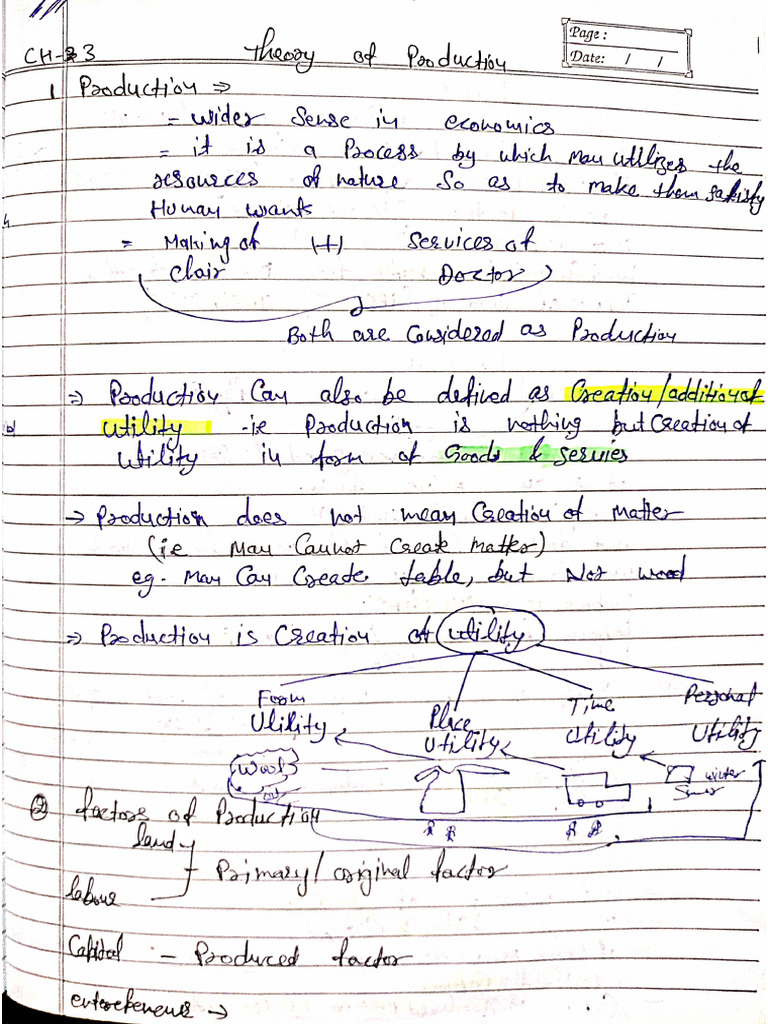 Page :
Date: / /
1
CH-3 Theory of Production
1 Production ⇒
= wider sense in economics
= it is a Process by which man utilizes the
resources of nature so as to make them satisfy
Human wants
= Making of (+) Services of
chair Doctor
Both are Considered as Production
⇒ Production Can also be defined as Creation/addition of
utility -ie Production is nothing but Creation of
utility in form of Goods & Servies
→ Production does not mean Creation of Matter
(ie Man Cannot Create Matter)
eg. Man Can Create table, but Not wood
⇒ Production is Creation of utility
Form Utility Place Utility Time Utility Personal Utility
winter
② factors of Production
land
Primary/original factor
labour
Capital - Produced factor
enterepeneur →